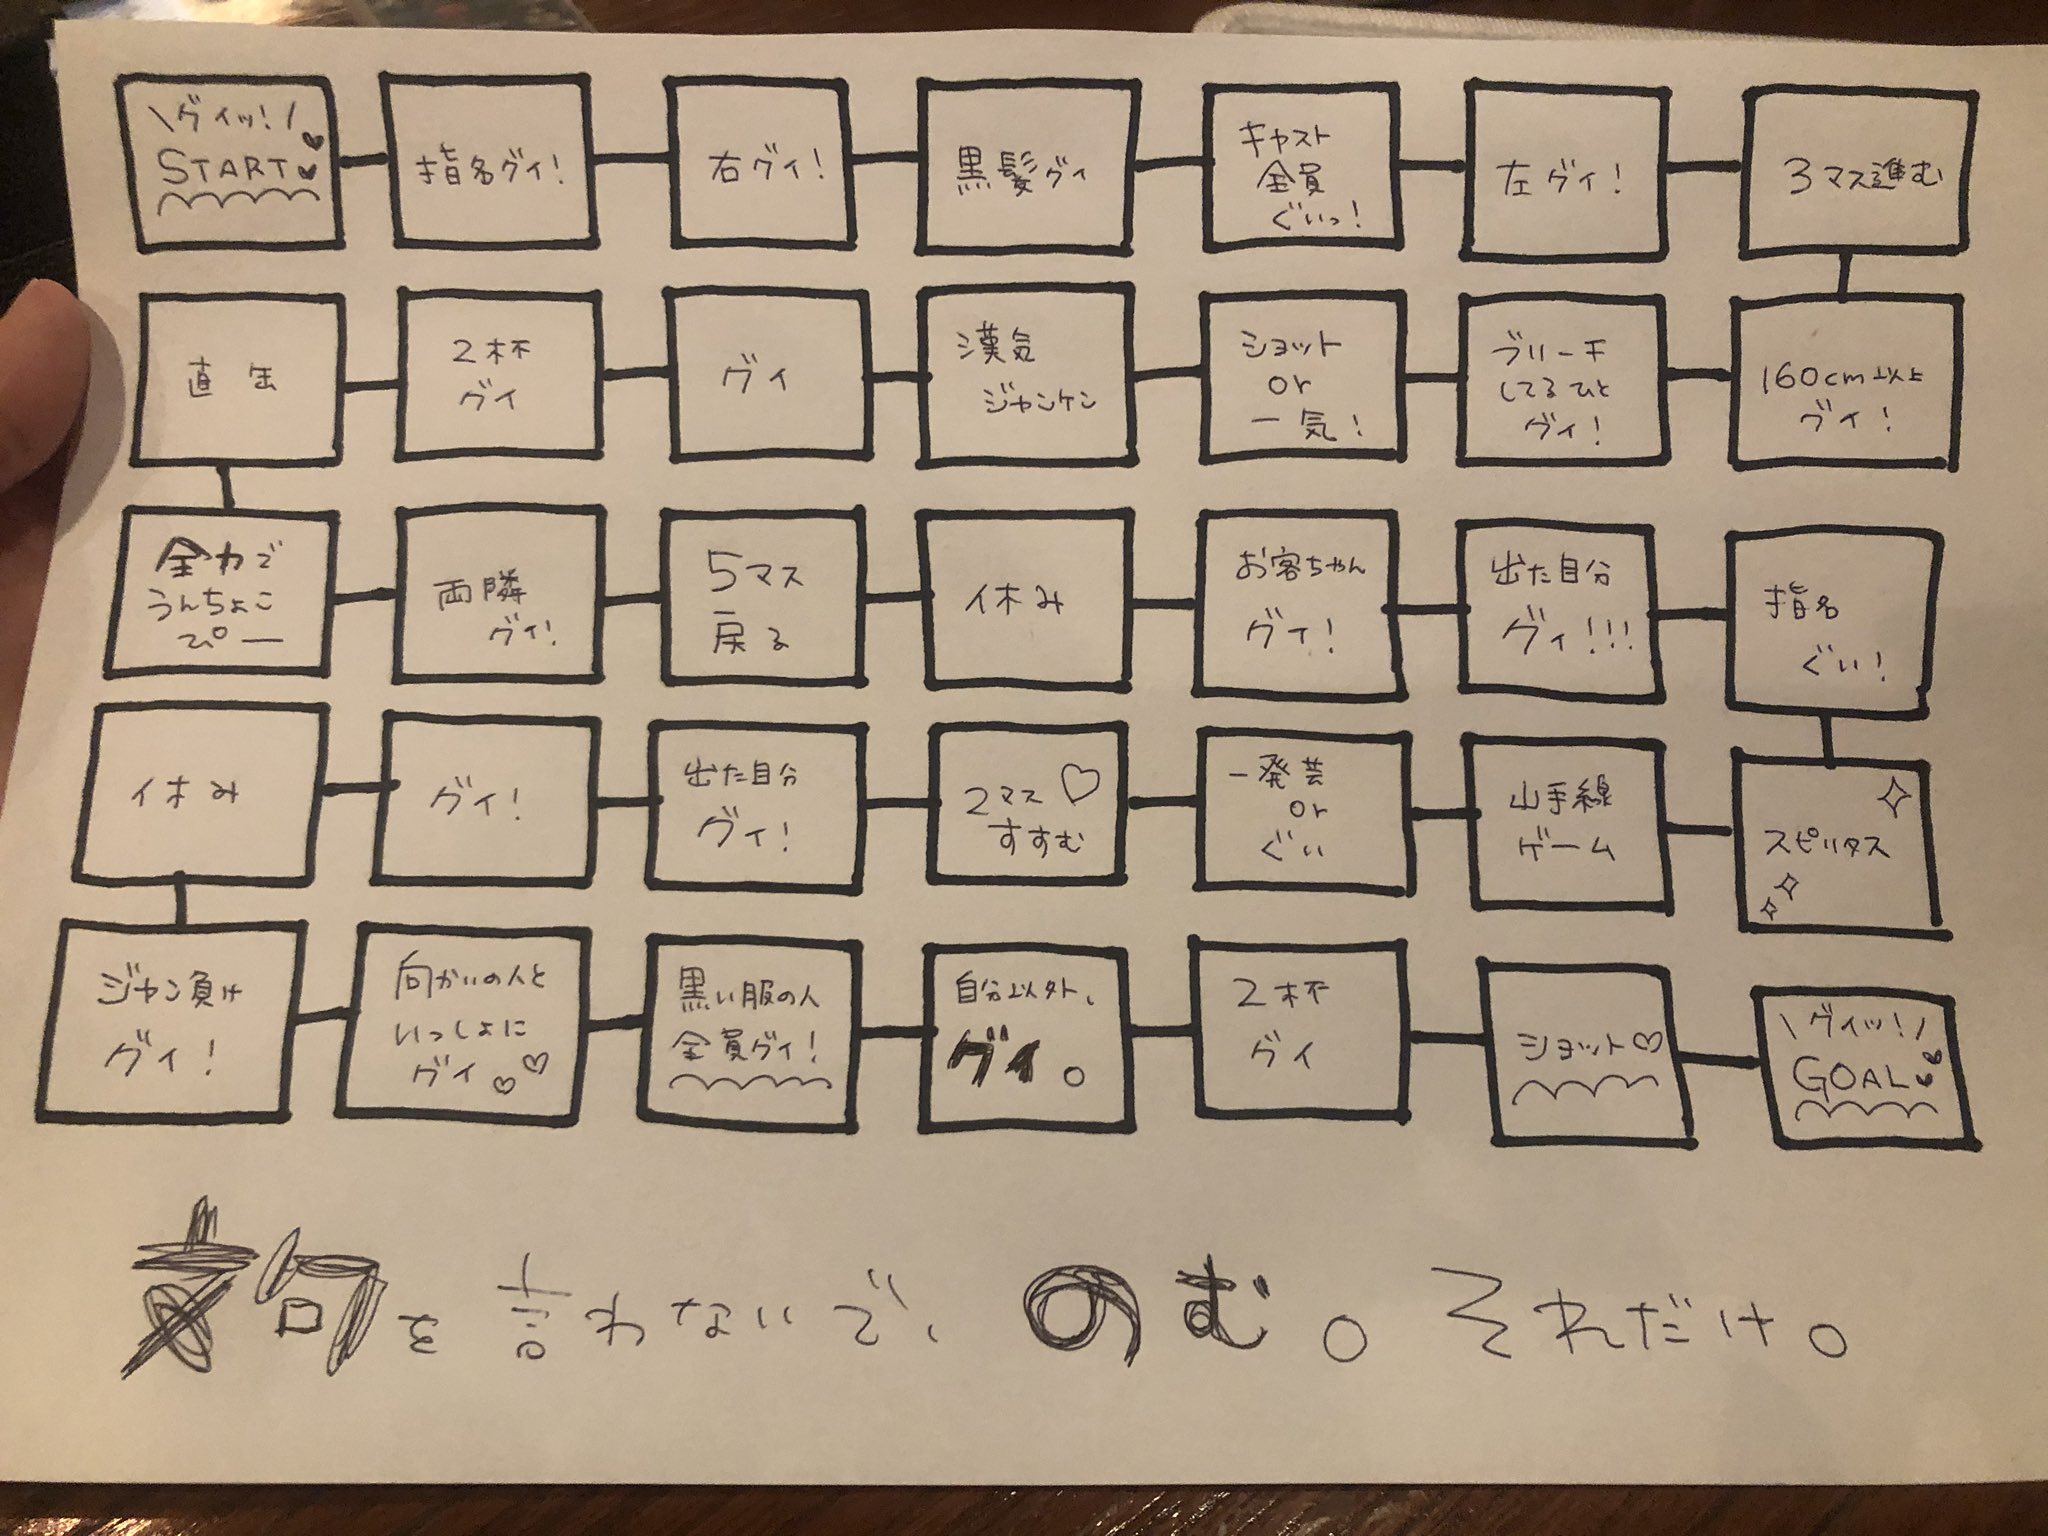 \グイッ!/
START
指名グイ!
右グイ!
黒髪グイ
キャスト
全員
ぐいっ!
左グイ!
3マス進む
直缶
2杯
グイ
グイ
漢気
ジャンケン
ショット
or
一気!
ブリーチ
してるひと
グイ!
160cm以上
グイ!
全力で
うんちょこ
ぴー
両隣
グイ!
5マス
戻る
休み
お客ちゃん
グイ!
出た自分
グイ!!!
指名
ぐい!
休み
グイ!
出た自分
グイ!
2マス♡
すすむ
一発芸
or
ぐい
山手線
ゲーム
スピリタス
ジャン負け
グイ!
向かいの人と
いっしょに
グイ♡♡
黒い服の人
全員グイ!
自分以外、
グイ。
2杯
グイ
ショット♡
\グイッ!/
GOAL
文句を言わないで、のむ。それだけ。